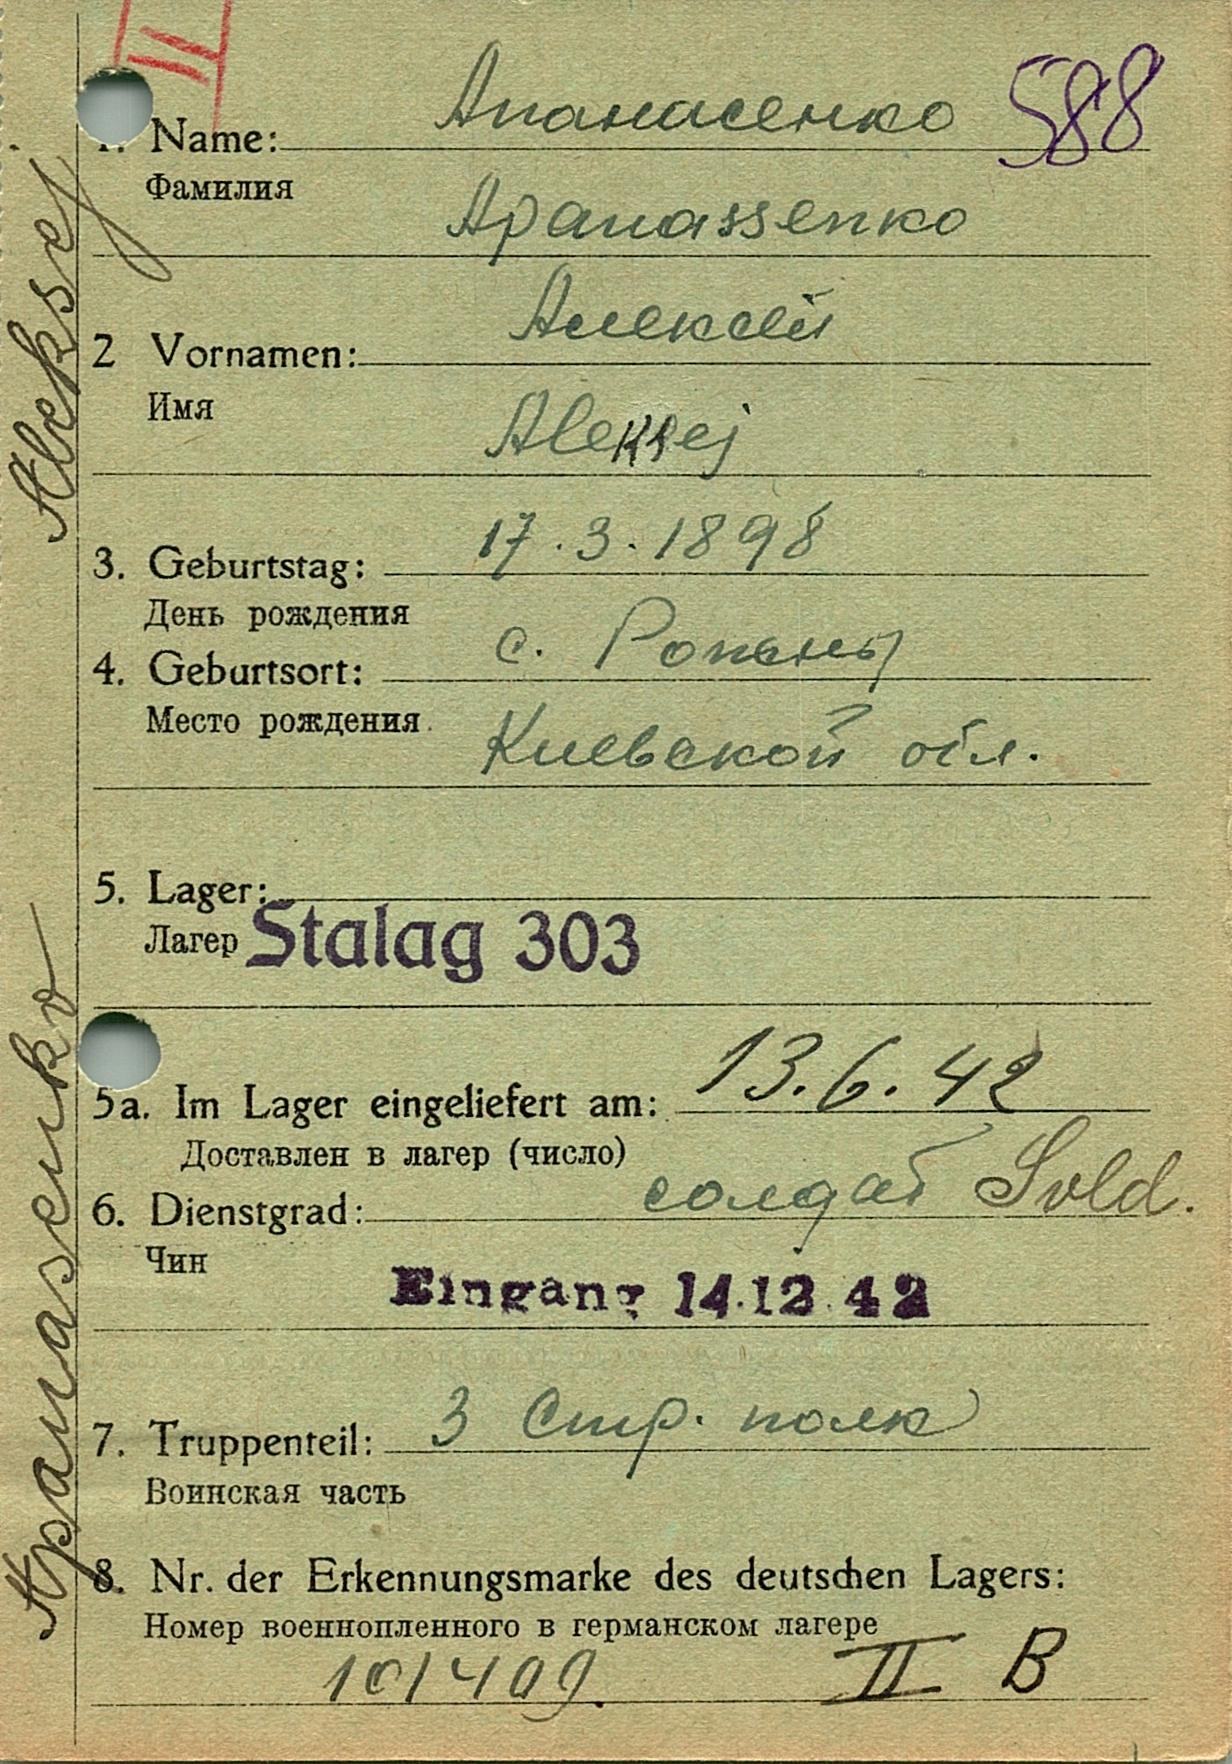 II
588
Апанасенко
1. Name:
Фамилия
Apanassenko
Алексей
2 Vornamen:
Имя
Aleksej
17.3.1898
3. Geburtstag:
День рождения
с.
4. Geburtsort:
Место рождения
Киевской обл.
5. Lager:
Лагер Stalag 303
5a. Im Lager eingeliefert am: 13.6.42
Доставлен в лагер (число)
6. Dienstgrad: солдат Sold.
Чин
Eingang 14.12.42
7. Truppenteil: 3 Стр. полк
Воинская часть
8. Nr. der Erkennungsmarke des deutschen Lagers:
Номер военнопленного в германском лагере
101409. II B
Apanasenko Aleksej